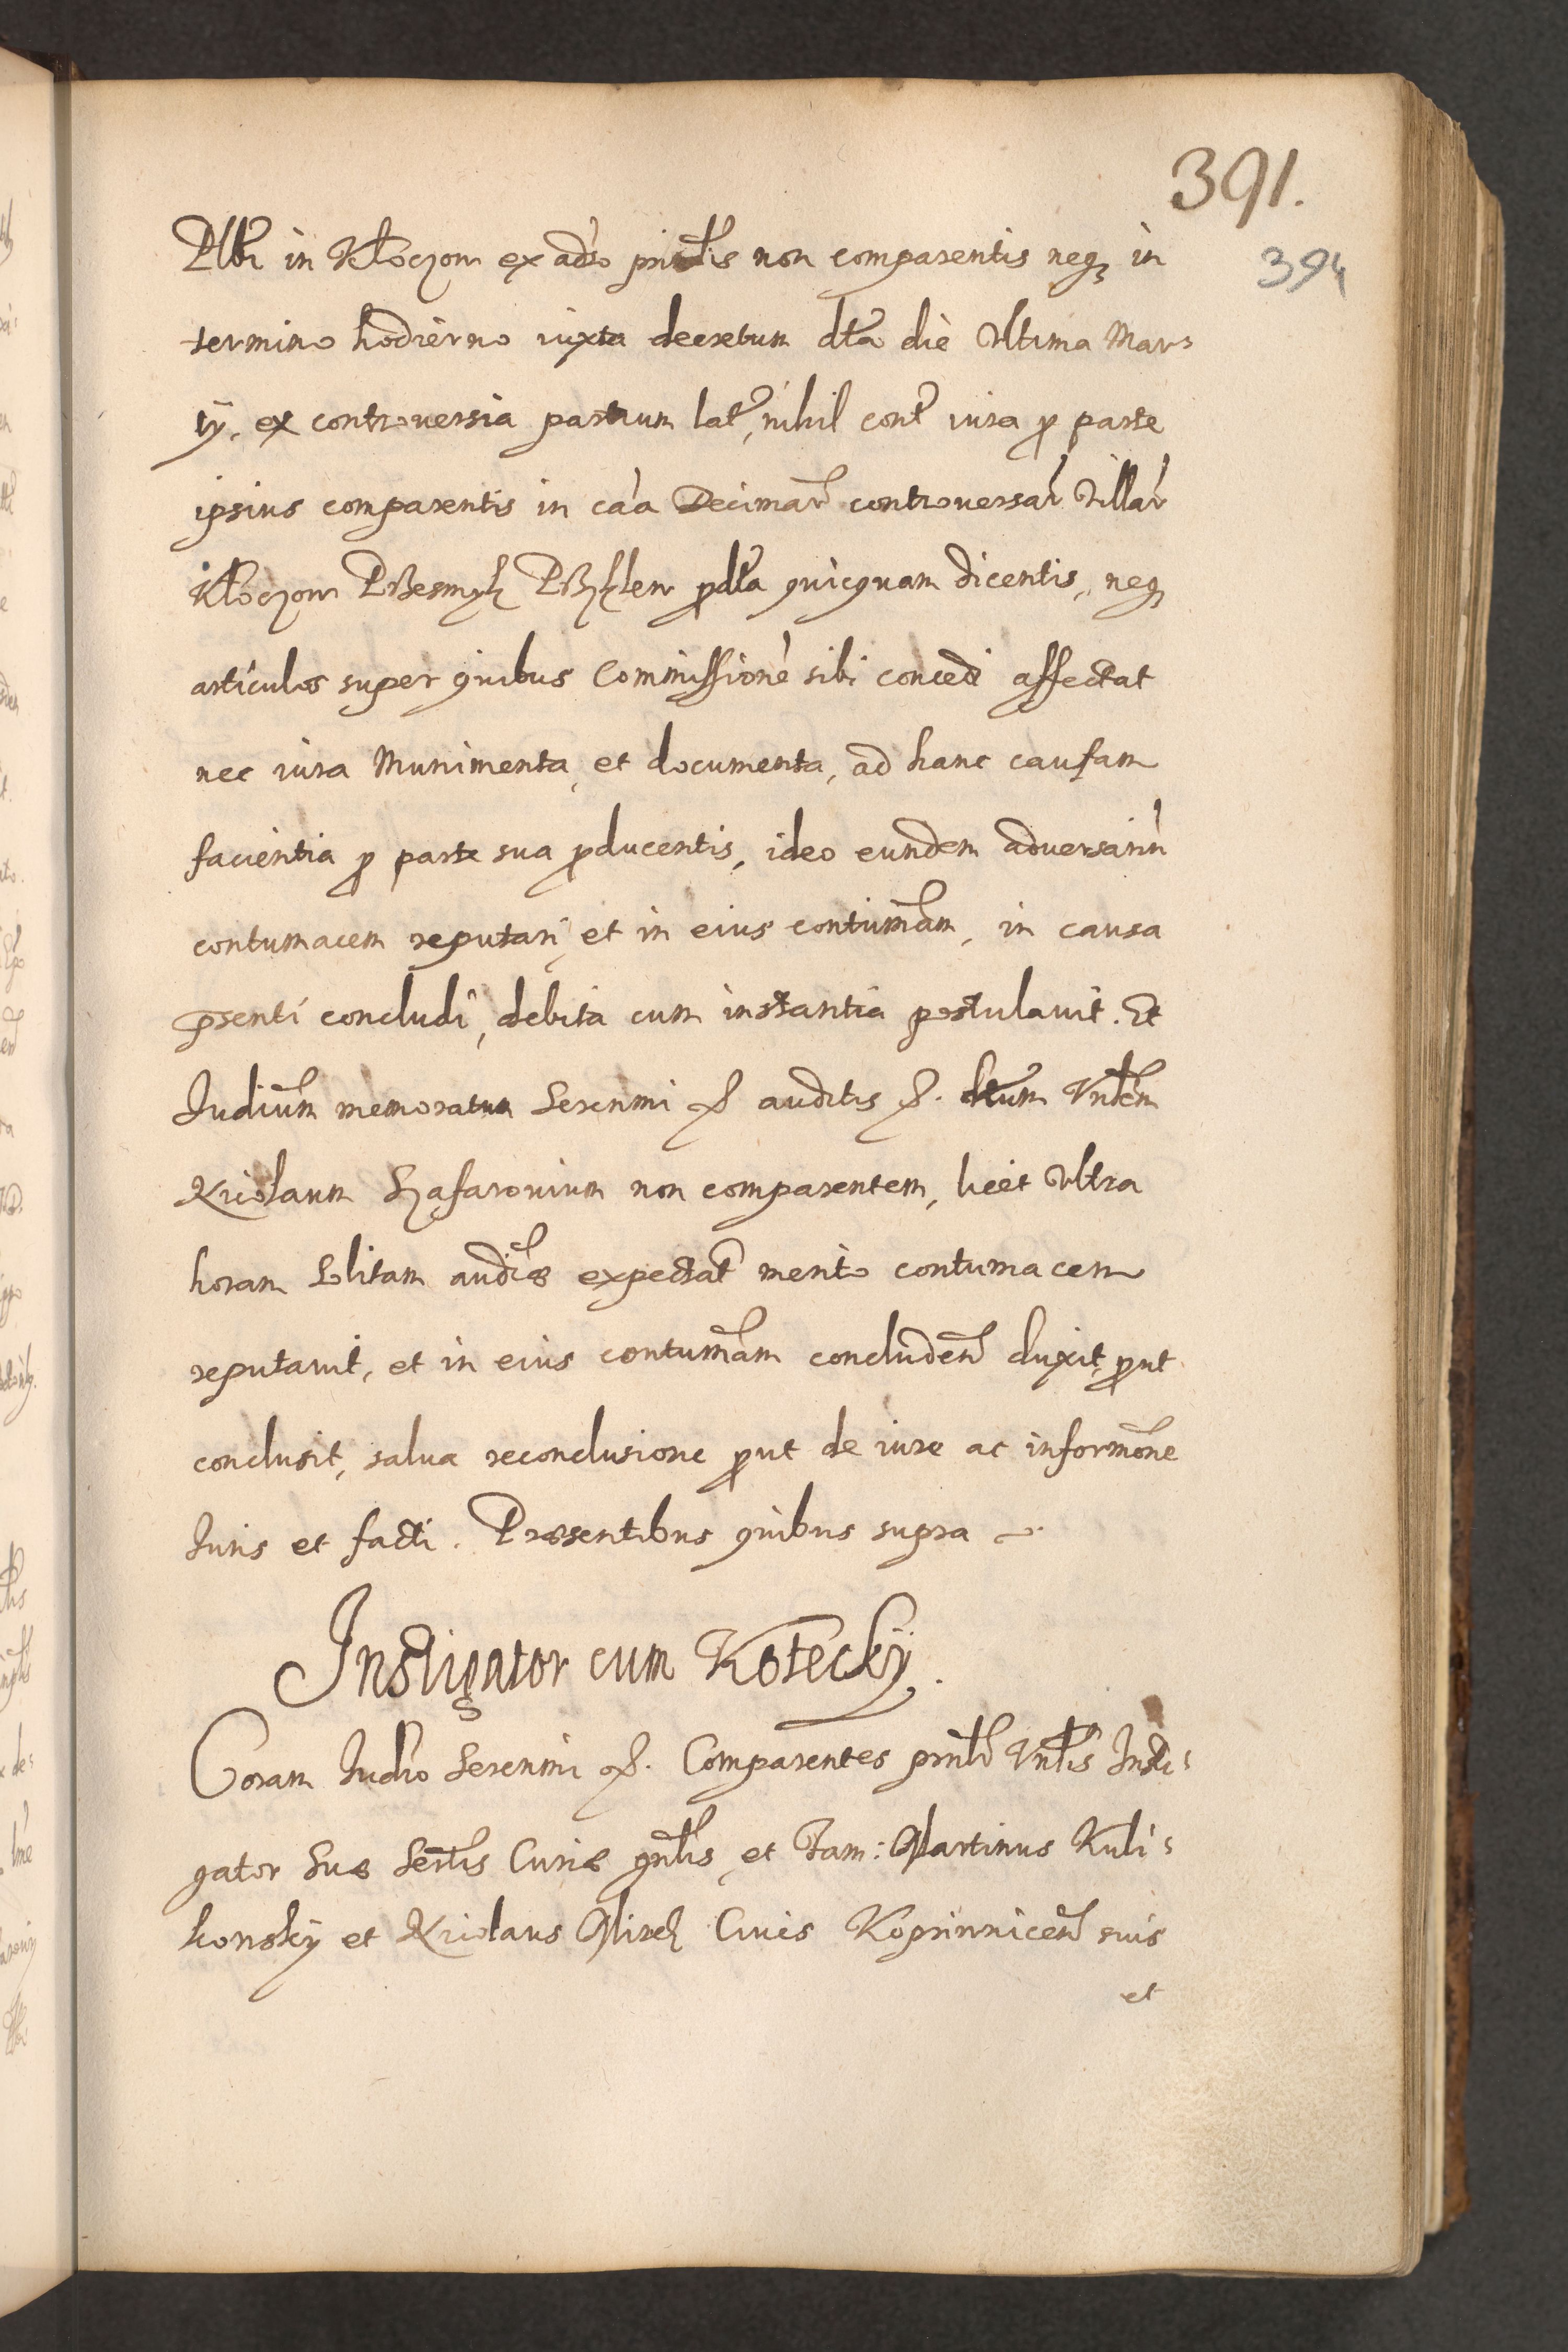 391.
394
Plbi in Kłoczow ex adso pntis non comparentis neq in
termino hodierno iuxta decretum dta die Ultima Mar=
tÿ, ex controversia partium lat, nihil cont iura p parte
ipsius comparentis in caa Decimar controversar Villar
Kłoczow pdta quicquam dicentis, neq
articulos super quibus Commissione sibi concedi affectat
nec iura Munimenta, et documenta, ad hanc causam
facientia p parte sua pducentis, ideo eundem adversariu
contumacem reputari, et in eius contumam, in causa
psenti concludi, debita cum instantia postulavit. Et
Judium memoratum Serenmi auditis dtum Vnblem
Nicolaum Szafarovium non comparentem, licet Ultra
horam Solitam audiæ expectat merito contumacem
reputavit, et in eius contumam concludend duxit, put
conclusit, salva reconclusione put de iure ac informone
Juris et facti. Præsentibus quibus supra
Instigator cum Koteckÿ.
Coram Judio Serenmi Comparentes pntr Vnblis Insti=
gator Suæ Sertis Curiæ gnlis, et Fam: Martinus Kuli=
konskÿ et Nicolaus Cives Koprinnicen suis
et